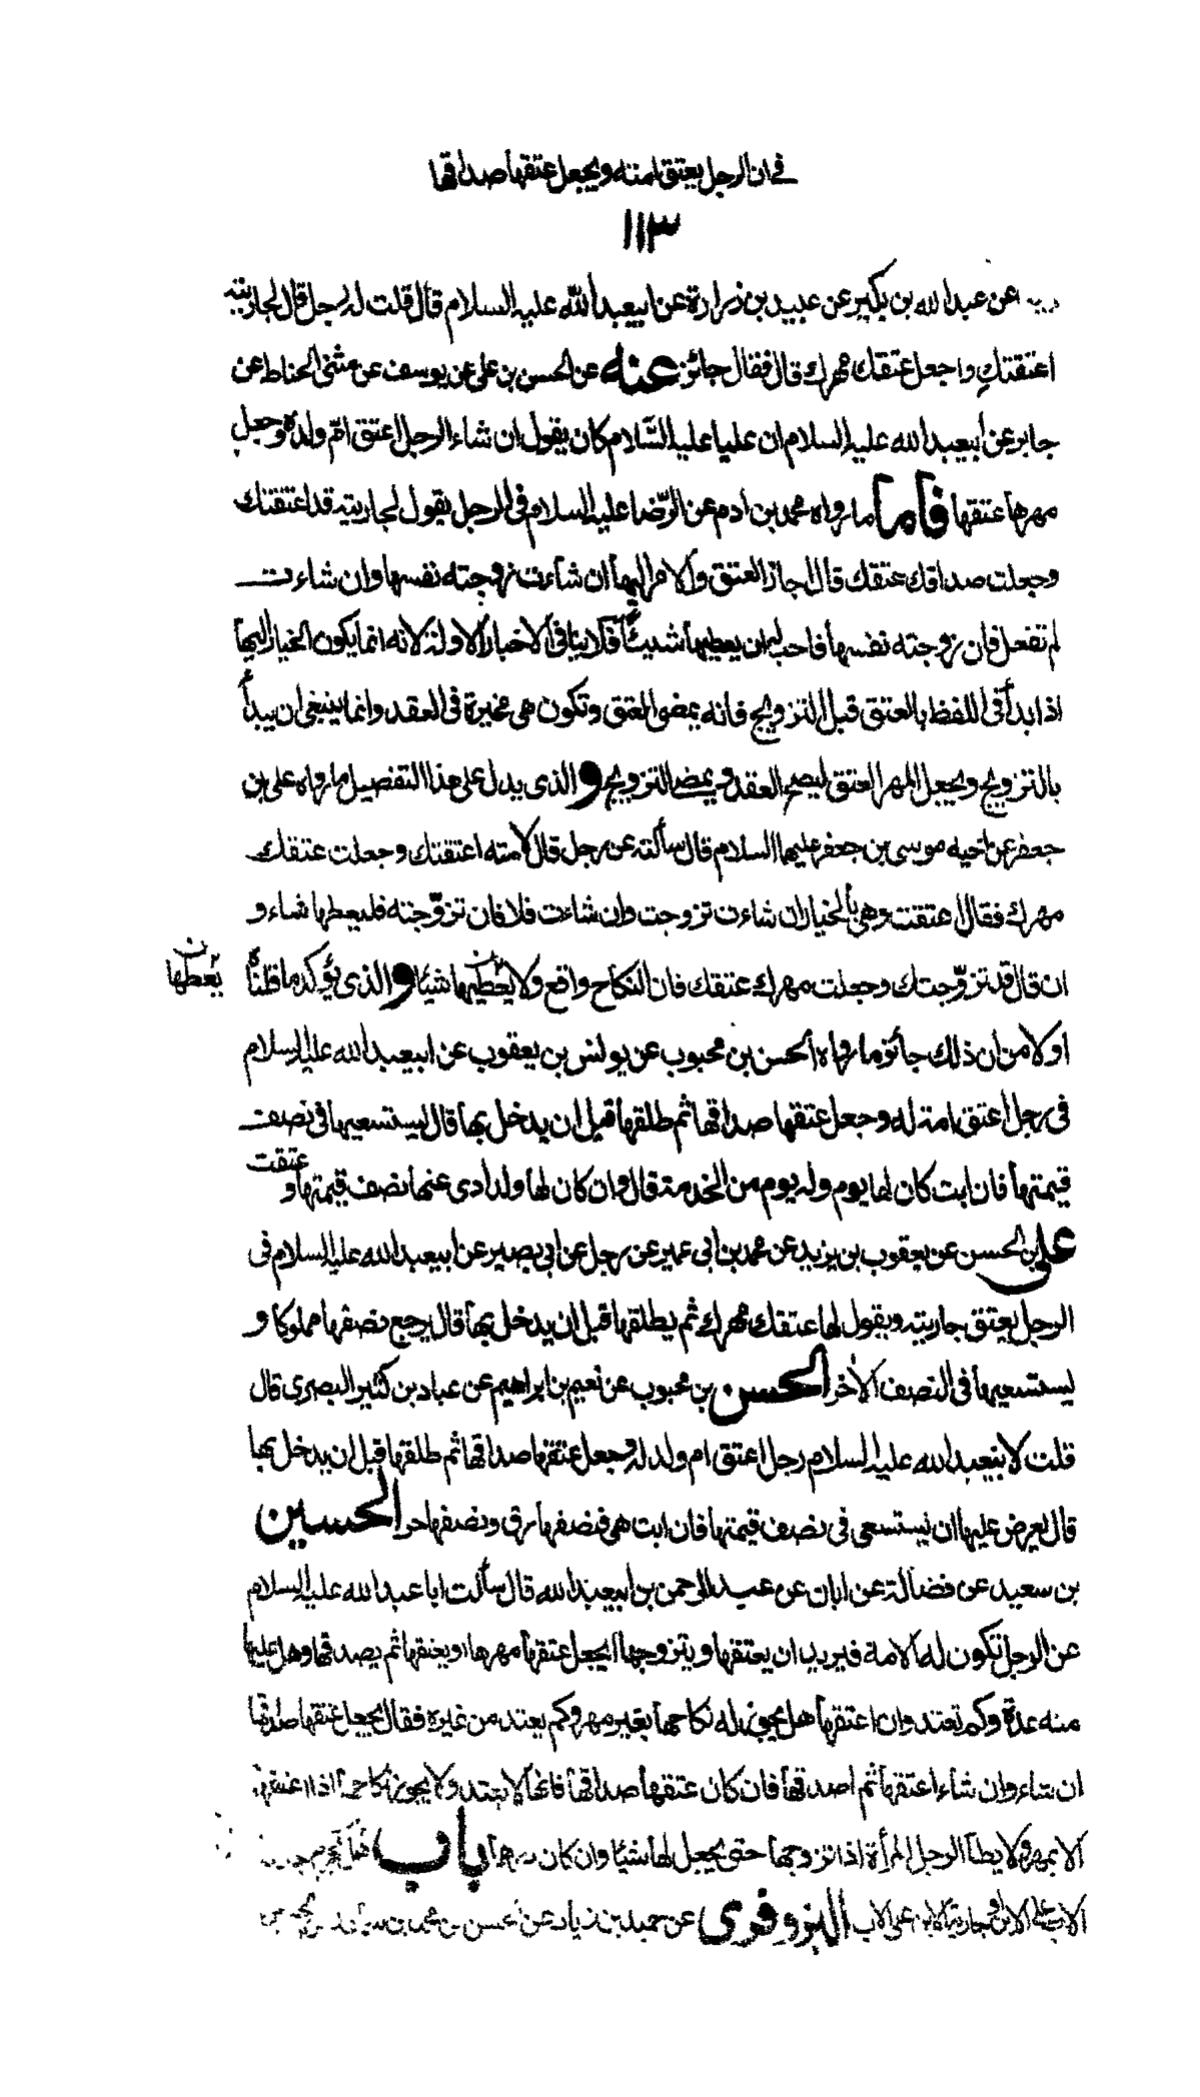 في ان الرجل يعتق امته ويجعل عتقها صداقها
١١٣
عن عبد الله بن بكير عن عبيد بن زرارة عن ابيعبد الله عليه السلام قال قلت له رجل قال لجاريته
اعتقتكِ واجعل عتقك مهرك قال فقال جائز عنه عن الحسن بن على عن يوسف عن مثنى الحناط عن
جابر عن ابيعبد الله عليه السلام ان عليا عليه السّلام كان يقول ان شاء الرجل اعتق امّ ولده وجعل
مهرها عتقها فاما ما رواه محمد بن ادم عن الرّضا عليه السلام فى الرجل يقول لجاريته قد اعتقتك
وجعلت صداقك عتقك قال جاز العتق والامر اليها ان شاءت زوجته نفسها وان شاءت
لم تفعل فان زوجته نفسها فاحب له ان يعطيها شيئاً فلا ينافى الاخبار الاولة لانه انما يكون الخيار اليها
اذا بدأ فى اللفظ بالعتق قبل التزويج فانه يمضى العتق وتكون هى مخيرة فى العقد وانما ينبغى ان يبدأ
بالتزويج ويجعل المهر العتق ليصح العقد ويمضى التزويج والذى يدل على هذا التفصيل ما رواه على بن
جعفر عن اخيه موسى بن جعفر عليهما السلام قال سألته عن رجل قال لامته اعتقتك وجعلت عتقك
مهرك فقال اعتقت وهى بالخيار ان شاءت تزوجت وان شاءت فلا فان تزوّجته فليعطها شاء و
ان قال قد تزوّجتك وجعلت مهرك عتقك فان النكاح واقع ولا يعطيها شيئا والذى يؤكد ما قلناه
يعطها ن
اولا من ان ذلك جائز ما رواه الحسن بن محبوب عن يونس بن يعقوب عن ابيعبد الله عليه السلام
فى رجل اعتق امة له وجعل عتقها صداقها ثم طلقها قبل ان يدخل بها قال يستسعيها فى نصف
قيمتها فان ابت كان لها يوم وله يوم من الخدمة قال وان كان لها ولد ادى عنها نصف قيمتها وعتقت
على بن الحسن عن يعقوب بن يزيد عن محمد بن ابى عمير عن رجل عن ابى بصير عن ابيعبد الله عليه السلام فى
الرجل يعتق جاريته ويقول لها عتقك مهرك ثم يطلقها قبل ان يدخل بها قال يرجع نصفها مملوكا و
يستسعيها فى النصف الاخر الحسن بن محبوب عن نعيم بن ابراهيم عن عباد بن كثير البصرى قال
قلت لابيعبد الله عليه السلام رجل اعتق ام ولد له وجعل عتقها صداقها ثم طلقها قبل ان يدخل بها
قال يعرض عليها ان يستسعى فى نصف قيمتها فان ابت هى فنصفها رق ونصفها حر الحسين
بن سعيد عن فضالة عن ابان عن عبد الرحمن بن ابيعبد الله قال سألت ابا عبد الله عليه السلام
عن الرجل تكون له الامة فيريد ان يعتقها ويتزوجها ايجعل عتقها مهرها او يعتقها ثم يصدقها وهل عليها
منه عدة وكم تعتد وان اعتقها هل يجوز له نكاحها بغير مهر وكم يعتد من غيره فقال يجعل عتقها صداقها
ان شاء وان شاء اعتقها ثم اصدقها فان كان عتقها صداقها فانها لا يعتد ولا يجوز نكاحها اذا اعتقها
الا بمهر ولا يطأ الرجل المرأة اذا تزوجها حتى يجعل لها شيئا وان كان درهما باب
الاب على الابن وجارية الابن على الاب البزوفرى عن حميد بن زياد عن الحسن بن محمد بن سماعة